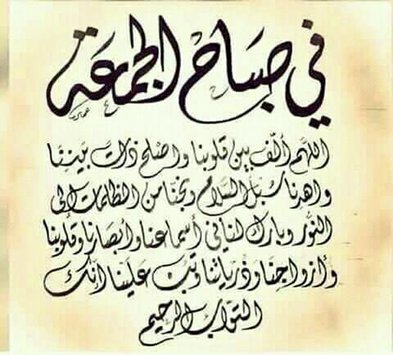 في صباح الجمعة
اللهم ألف بين قلوبنا واصلح ذات بيننا
واهدنا سبل السلام ونجنا من الظلمات إلى
النور وبارك لنا في أسماعنا وأبصارنا وقلوبنا
وأزواجنا وذرياتنا وتب علينا انك
التواب الرحيم